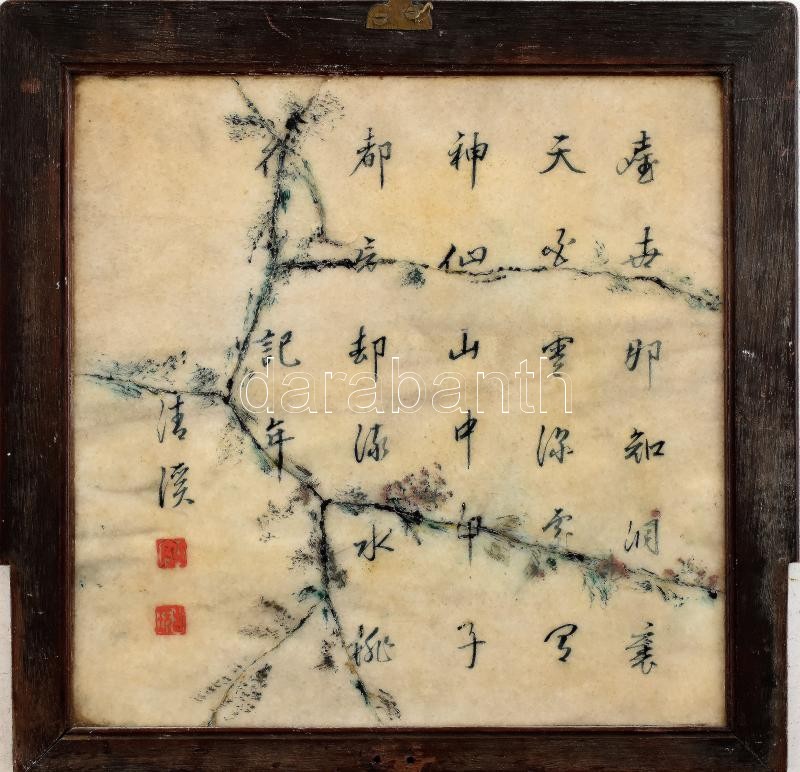 塵世那知洞裏
天白雲深處有
神仙山中甲子
都忘却流水桃
花記年
清溪
darabanth